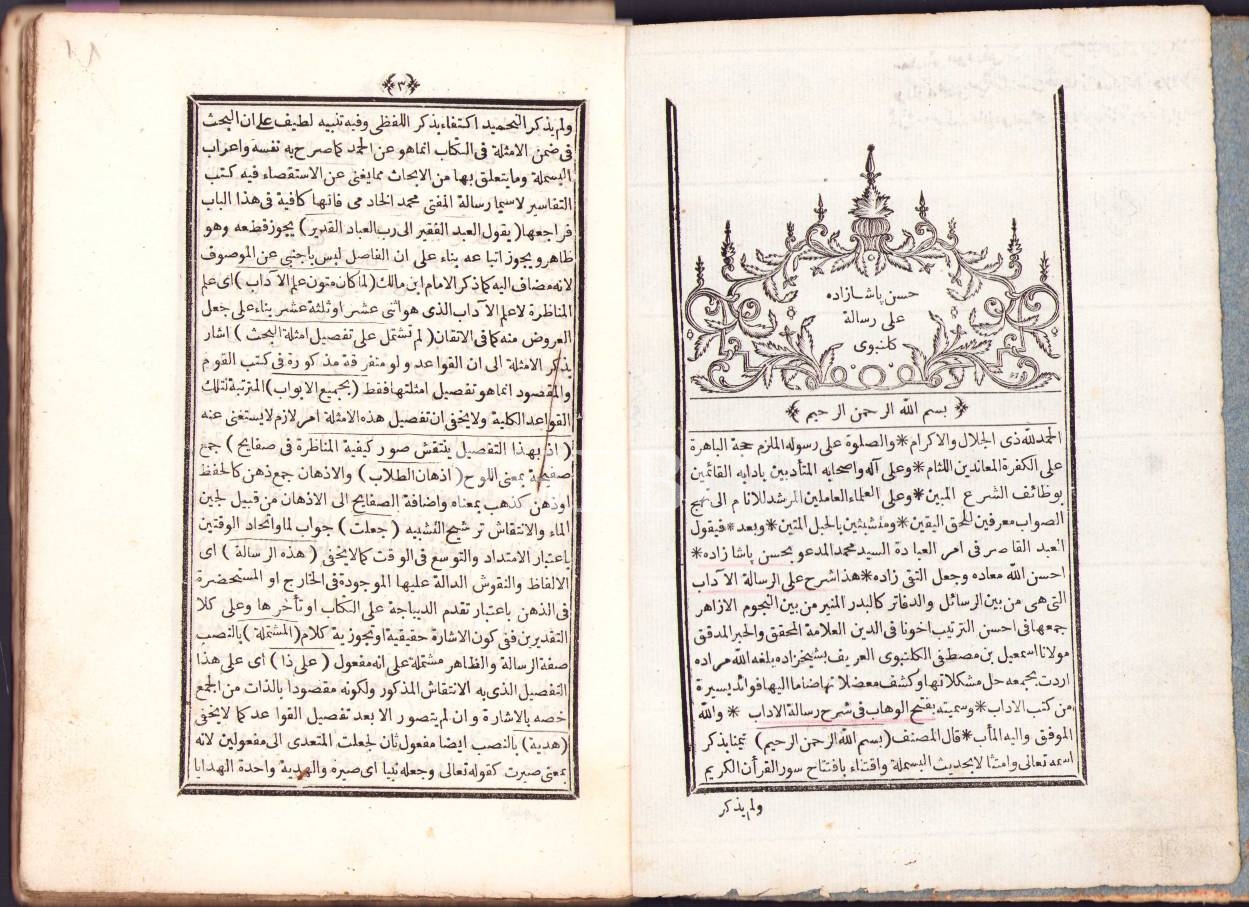 حسن پاشازاده
على رسالة
كلنبوى
بسم الله الرحمن الرحيم
الحمد لله ذى الجلال والاكرام * والصلوة على رسوله الملزم حجة الباهرة
على الكفرة المعاندين اللئام * وعلى آله واصحابه المتأدبين بادابه القائمين
بوظائف الشرع المبين * وعلى العلماء العاملين المرشد للانام الى نهج
الصواب معرفين للحق اليقين * ومتشبثين بالحبل المتين * وبعد * فيقول
العبد القاصر فى امر العبادة السيد محمد المدعو بحسن پاشازاده *
احسن الله معاده وجعل التقى زاده * هذا شرح على الرسالة الآداب
التى هى من بين الرسائل والدفاتر كالبدر المنير من بين النجوم الازاهر
جمعها فى احسن الترتيب اخونا فى الدين العلامة المحقق والحبر المدقق
مولانا اسمعيل بن مصطفى الكلنبوى العريف بشيخزاده بلغه الله مراده
اردت بجمعه حل مشكلاتها وكشف معضلاتها ضاما اليها فوائد يسيرة
من كتب الاداب * وسميته بفتح الوهاب فى شرح رسالة الاداب * والله
الموفق واليه المآب * قال المصنف (بسم الله الرحمن الرحيم) تيمنا بذكر
اسمه تعالى وامتثالا بحديث البسملة واقتداء بافتتاح سور القرأن الكريم
ولم يذكر
٣
ولم يذكر التحميد اكتفاء بذكر اللفظى وفيه تنبيه لطيف على ان البحث
فى ضمن الامثلة فى الكتاب انما هو عن الحمد كما صرح به نفسه واعراب
البسملة وما يتعلق بها من الابحاث مما يغنى عن الاستقصاء فيه كتب
التفاسير لاسيما رسالة المفتى محمد الخادمى فانها كافية فى هذا الباب
فراجعها (يقول العبد الفقير الى رب العباد القدير) يجوز قطعه وهو
ظاهر ويجوز اتباعه بناء على ان الفاصل ليس باجنبى عن الموصوف
لانه مضاف اليه كما ذكر الامام ابن مالك (لما كان متون علم الآداب) اى علم
المناظرة لا علم الآداب الذى هو اثنى عشر او ثلثة عشر بناء على جعل
العروض منه كما فى الاتقان (لم تشتمل على تفصيل امثلة البحث) اشار
بذكر الامثلة الى ان القواعد ولو متفرقة مذكورة فى كتب القوم
والمقصود انما هو تفصيل امثلتها فقط (بجميع الابواب) المترتبة لتلك
القواعد الكلية ولا يخفى ان تفصيل هذه الامثلة امر لازم لا يستغنى عنه
(اذ بهذا التفصيل ينتقش صور كيفية المناظرة فى صفايح) جمع
صفيحة بمعنى اللوح (اذهان الطلاب) والاذهان جمع ذهن كالحفظ
او ذهن كذهب بمعناه واضافة الصفايح الى الاذهان من قبيل لجين
الماء والانتقاش ترشيح التشبيه (جعلت) جواب لما واتحاد الوقتين
باعتبار الامتداد والتوسع فى الوقت كما لا يخفى (هذه الرسالة) اى
الالفاظ والنقوش الدالة عليها الموجودة فى الخارج او المستحضرة
فى الذهن باعتبار تقدم الديباجة على الكتاب او تأخرها وعلى كلا
التقديرين ففى كون الاشارة حقيقية او تجوزية كلام (المشتملة) بالنصب
صفة الرسالة والظاهر مشتملة على انه مفعول (على ذا) اى على هذا
التفصيل الذى به الانتقاش المذكور ولكونه مقصودا بالذات من الجمع
خصه بالاشارة وان لم يتصور الا بعد تفصيل القواعد كما لا يخفى
(هدية) بالنصب ايضا مفعول ثان لجعلت المتعدى الى مفعولين لانه
بمعنى صيرت كقوله تعالى وجعله نبيا اى صيره والهدية واحدة الهدايا